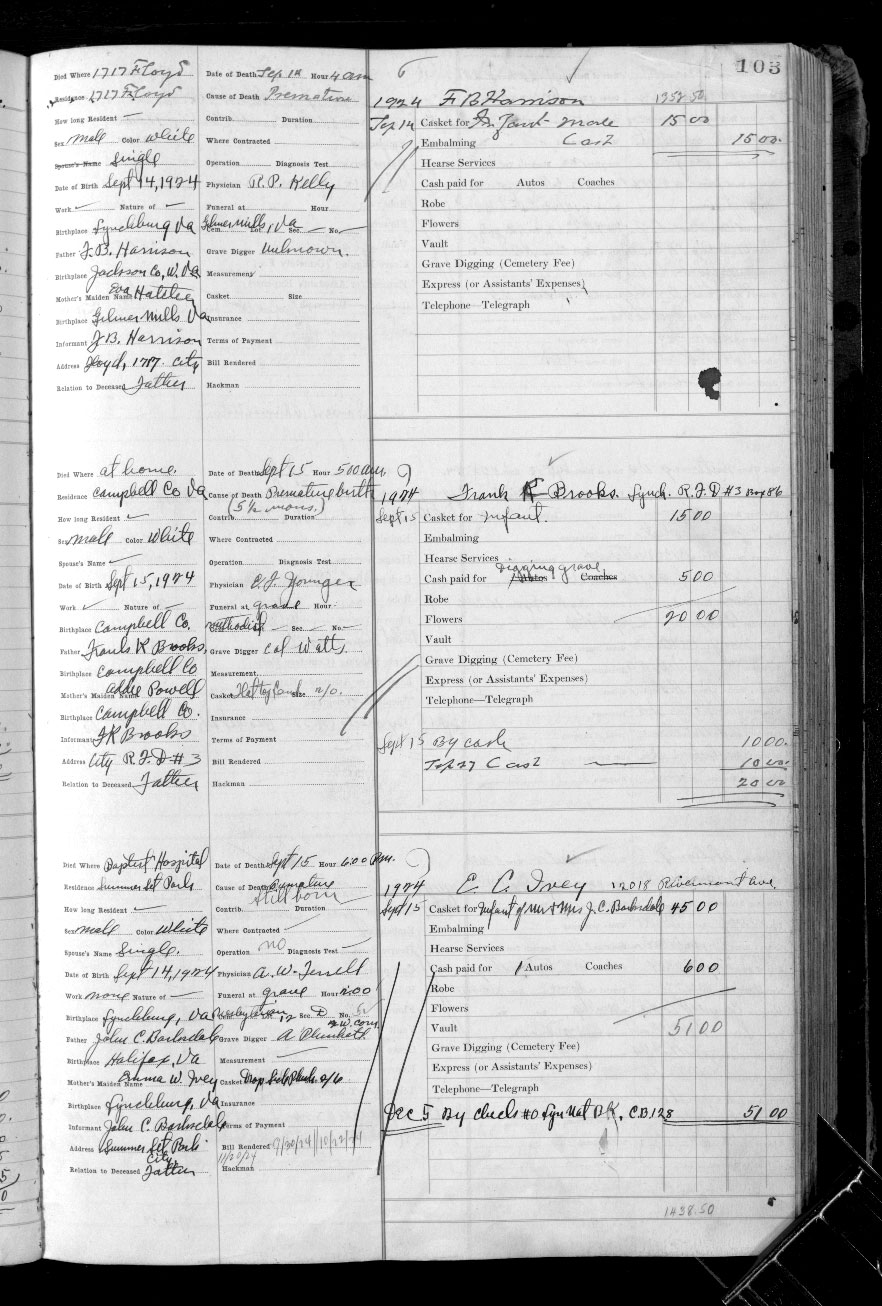 103
Died Where 1717 Floyd
Residence 1717 Floyd
How long Resident —
Sex male Color White
Spouse's Name Single
Date of Birth Sept 14, 1924
Work Nature of —
Birthplace Lynchburg Va
Father F. B. Harrison
Birthplace Jackson Co, W. Va
Mother's Maiden Name Eva
Birthplace Gilmer Mills Va
Informant F. B. Harrison
Address Floyd, 1717. City
Relation to Deceased Father
Date of Death Sep 14 Hour 4 am
Cause of Death Premature
Contrib. Duration
Where Contracted
Operation Diagnosis Test
Physician R. P. Kelly
Funeral at Hour
Cem. Gilmer Mills, Va Lot Sec. — No. —
Grave Digger Unknown.
Measurement
Casket Size
Insurance
Terms of Payment
Bill Rendered
Hackman
1924 F B Harrison 1958.50
Sep 14 Casket for Infant male 15 00
Embalming Cash 15 00
Hearse Services
Cash paid for Autos Coaches
Robe
Flowers
Vault
Grave Digging (Cemetery Fee)
Express (or Assistants' Expenses)
Telephone—Telegraph
Died Where at home.
Residence Campbell Co Va
How long Resident —
Sex male Color White
Spouse's Name —
Date of Birth Sept 15, 1924
Work Nature of —
Birthplace Campbell Co.
Father Frank K Brooks,
Birthplace Campbell Co
Mother's Maiden Name Addie Powell
Birthplace Campbell Co.
Informant F K Brooks
Address City R. F. D # 3
Relation to Deceased Father
Date of Death Sept 15 Hour 5 00 am.
Cause of Death Premature birth
(5½ mons.)
Contrib. Duration
Where Contracted
Operation Diagnosis Test
Physician E. J. Younger
Funeral at grave Hour
Methodist — Sec. — No. —
Grave Digger Cal Watts.
Measurement
Casket Size 2/0.
Insurance
Terms of Payment
Bill Rendered
Hackman
1924 Frank K Brooks. Lynch. R. F. D # 3 Box 86
Sept 15 Casket for Infant. 15 00
Embalming
Hearse Services
digging grave
Cash paid for Autos Coaches 5 00
Robe
Flowers 20 00
Vault
Grave Digging (Cemetery Fee)
Express (or Assistants' Expenses)
Telephone—Telegraph
Sept 15 By cash 10 00.
Sep 27 Cash — 10 00.
20 00
Died Where Baptist Hospital
Residence Summer Set Park
How long Resident —
Sex male Color White
Spouse's Name Single.
Date of Birth Sept 14, 1924
Work none Nature of —
Birthplace Lynchburg, Va
Father John C. Barksdale
Birthplace Halifax, Va
Mother's Maiden Name Emma W. Ivey
Birthplace Lynchburg, Va
Informant John C. Barksdale
Address Summer Set Park
City
Relation to Deceased Father
Date of Death Sept 15 Hour 6:00 P.m.
Cause of Death Premature
Stillborn
Contrib. Duration
Where Contracted
Operation no Diagnosis Test —
Physician A. W. Terrell
Funeral at grave Hour 2:00
Cem. Presbyterian Lot 12 Sec. D No.
Grave Digger A Plunkett.
Measurement —
Casket Drop Side Plush 2/6
Insurance
Terms of Payment
Bill Rendered 9/30/24 10/22/24
11/20/24
Hackman
1924 E. C. Ivey 2018 Rivermont Ave.
Sept 15 Casket for Infant of Mr & Mrs J. C. Barksdale 45 00
Embalming
Hearse Services
Cash paid for 1 Autos Coaches 6 00
Robe
Flowers
Vault 51 00
Grave Digging (Cemetery Fee)
Express (or Assistants' Expenses)
Telephone—Telegraph
Dec 5 By check #0 Lyn Nat B K, C.B 128 51 00
1438.50